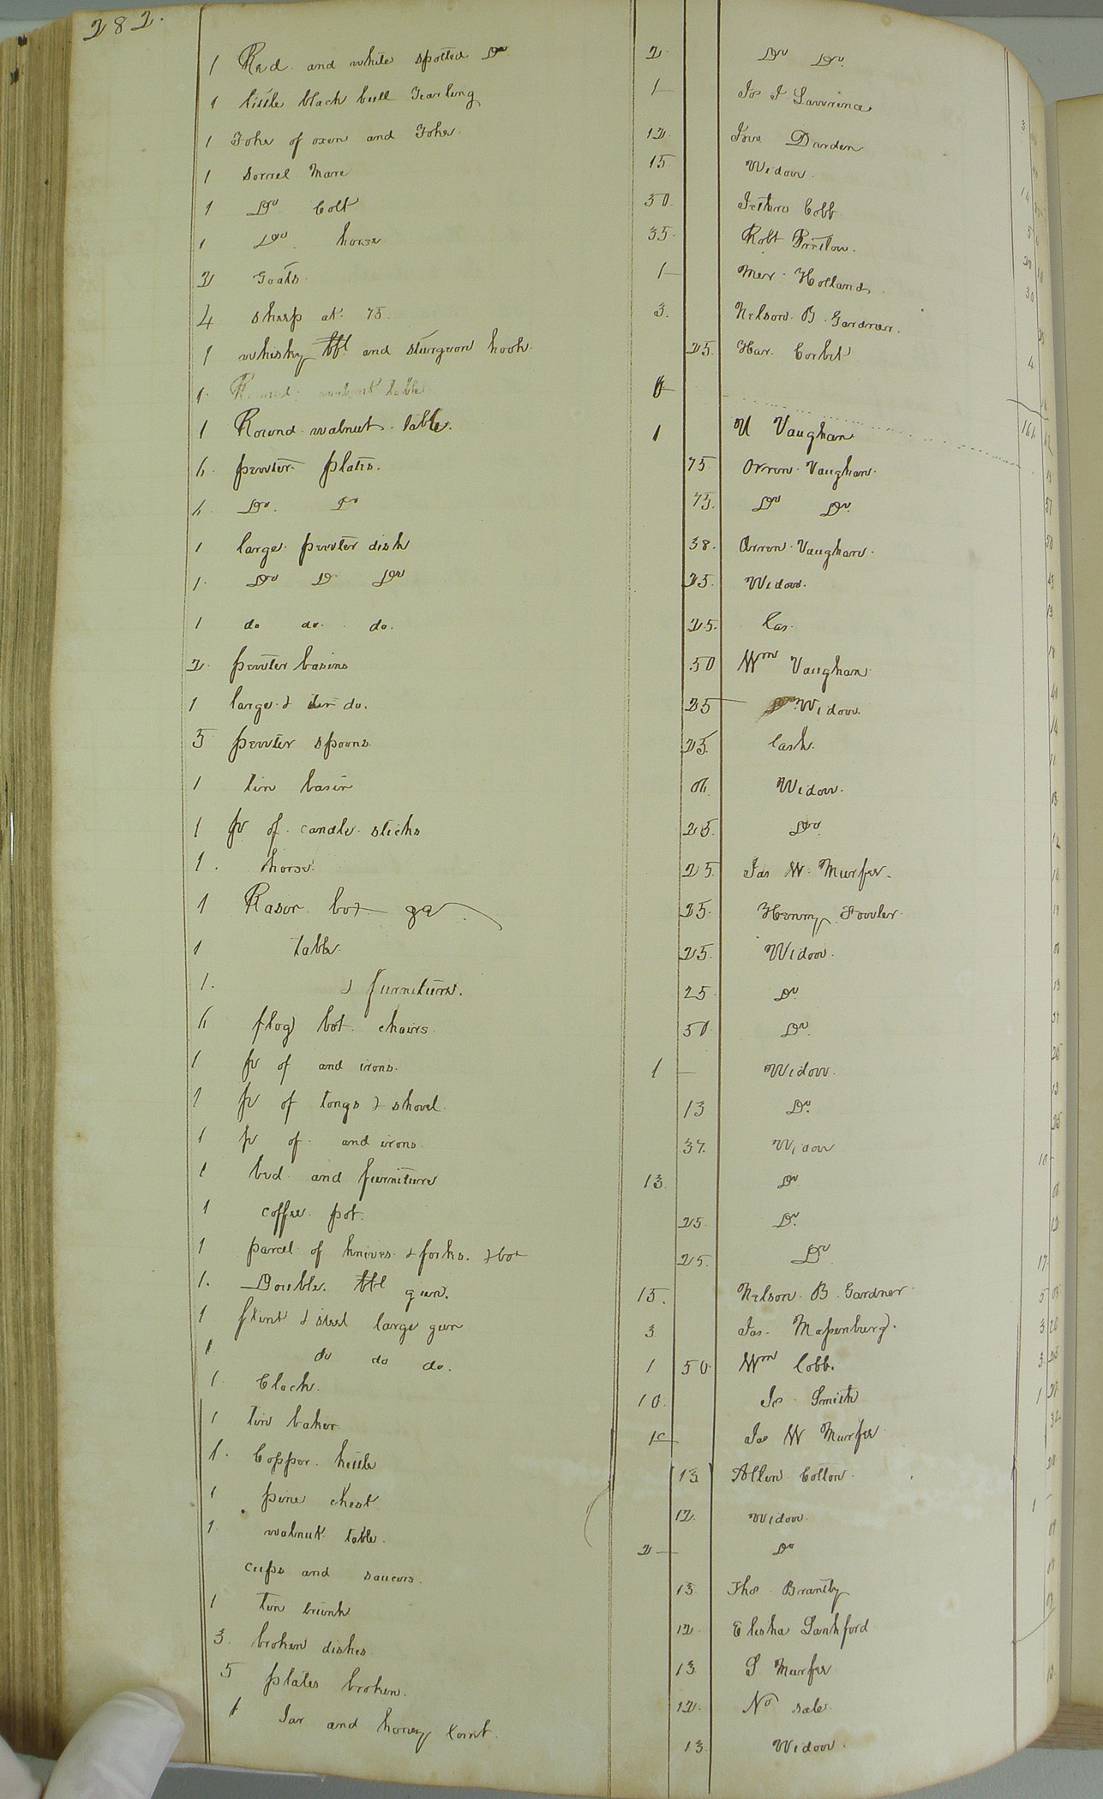 282.
1 Red and white spotted Do 2 Do Do.
1 little black bull Yearling 1— Jos J Lawrence
1 Yoke of oxen and Yoke. 12. Darden
1 sorrel Mare 15 Widow.
1 Do Colt 30. Jethro Cobb
1 Do. horse 35. Robt
2 Goats. 1— Mer. Holland
4 sheep at 75. 3. Nelson B. Gardner.
1 whisky bbl and sturgeon hook. 25. Har. Corbit
1. Round walnut table
1 Round walnut table. 1 U Vaughan
6. pewter plates. 75 Orren Vaughan.
6. Do. Do 75. Do Do.
1 large pewter dish 38. Orren Vaughan.
1. Do D Do 25. Widow.
1 do do. do. 25. Cas.
2. pewter basins 50 Wm Vaughan
1 large & do. 25— Widow.
5 pewter spoons 25. Cash.
1 tin basin 06. Widow.
1 pr of candle sticks 25. Do.
1. horse. 25. Jas W. Murfee.
1 Rasor box 25. Henry Fowler
1 table. 25. Widow.
1. & furniture. 25 Do
6 flag bot. chairs 50. Do.
1 pr of and irons. 1— Widow.
1 pr of tongs & shovel. 13 Do.
1 pr of and irons 37. Widow
1 bed and furniture 13. Do
1 coffee pot. 25. Do.
1 parcel of knives & forks. & box 25. Do
1. Double bbl gun. 15. Nelson B Gardner
1 flint & steel large gun 3 Jas. Massenburg.
1 do do do. 1 50. Wm Cobb.
1. Clock. 10. Jo Smith
1 tin baker Jas W Murfee
1. Copper kettle 13 Allen Cotton.
1 pine chest 12. Widow.
1 walnut table. 2— Do
cups and saucers. 13. Thos Brantly
1 tin trunk 12. Elisha Lankford
3. broken dishes 13. S Murfee
5 plates broken. 12. No sale.
1 Jar and honey comb. 13. Widow.